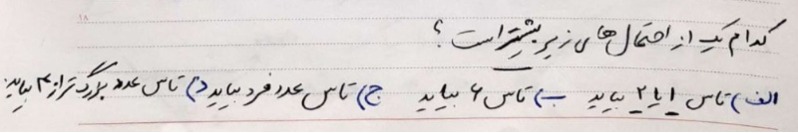 کدام یک از احتمال های زیر بیشتر است ؟
الف) تاس ۱ یا ۲ بیاید ب) تاس ۶ بیاید ج) تاس عدد فرد بیاید د) تاس عدد بزرگ تر از ۳ بیاید.